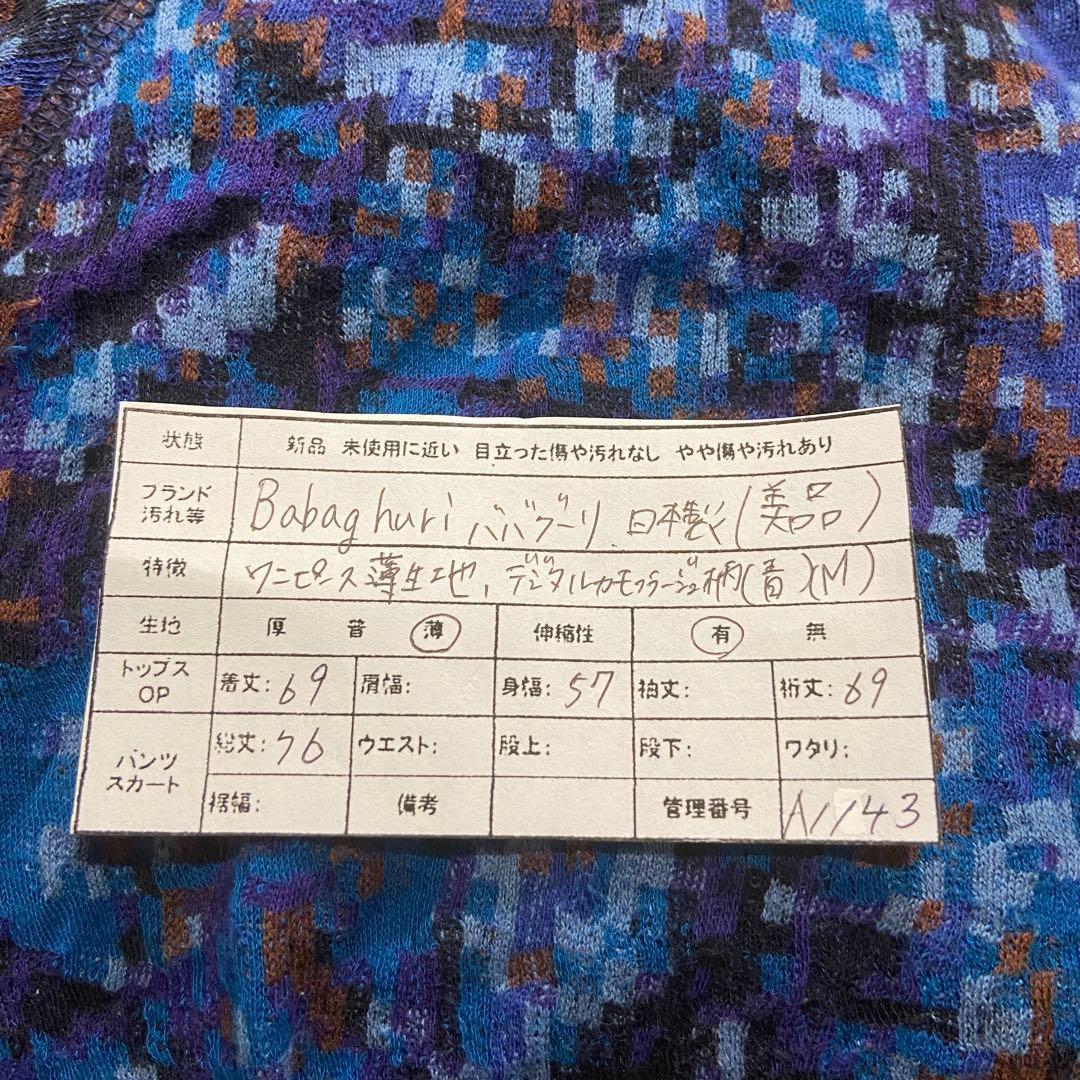 状態 新品 未使用に近い 目立った傷や汚れなし やや傷や汚れあり
ブランド 汚れ等 Babaghuri ババグーリ 日本製(美品)
特徴 ワンピース薄生地、デジタルカモフラージュ柄(青)(M)
生地 厚 普 薄 伸縮性 有 無
トップス OP 着丈:69 肩幅: 身幅:57 袖丈: 裄丈:69
パンツ スカート 総丈:76 ウエスト: 股上: 股下: ワタリ:
裾幅: 備考 管理番号 A1143